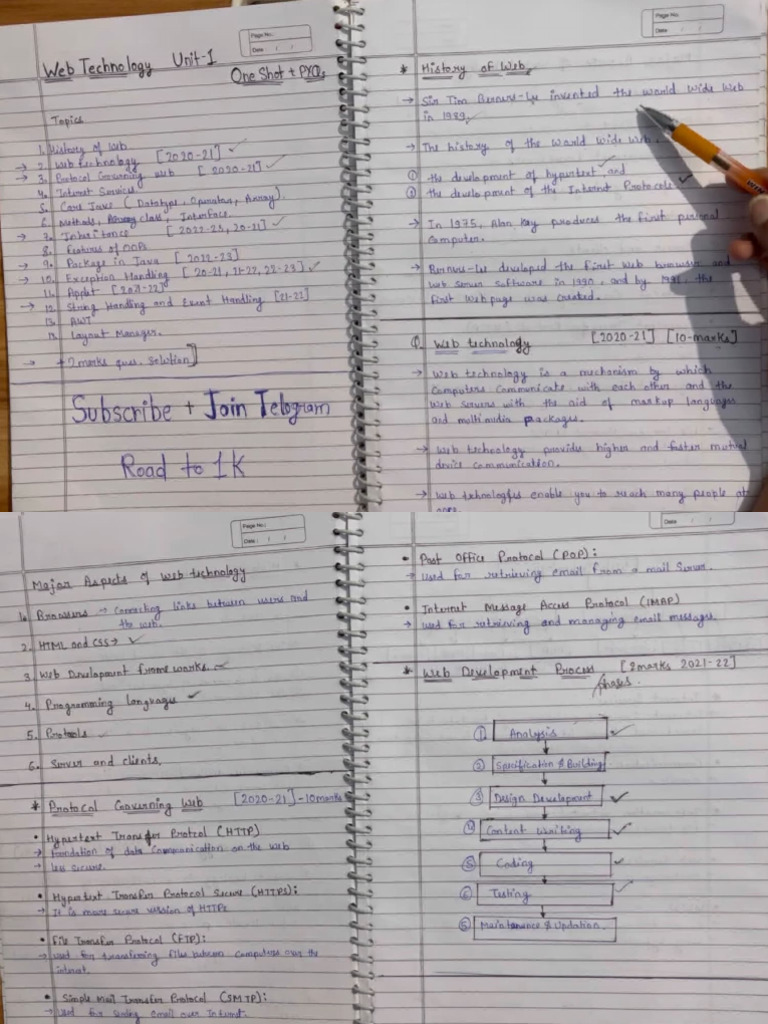 Page No.:
Date: / /
Web Technology Unit-1
One Shot + PYQs
Topics
1. History of Web
→ 2. Web Technology [2020-21] ✓
→ 3. Protocol Governing Web [2020-21] ✓
4. Internet Services
5. Core Java (Datatype, Operators, Array).
6. Methods, class, Interface.
→ 7. Inheritance [2022-23, 20-21] ✓
8. Features of OOPs
→ 9. Package in Java [2022-23]
→ 10. Exception Handling [20-21, 21-22, 22-23] ✓
11. Applet [2021-22]
→ 12. String Handling and Event Handling [21-22]
13. AWT
Layout Manager.
→ + 2 marks ques. solution]
Subscribe + Join Telegram
Road to 1K
Page No.:
Date: / /
* History of Web
→ Sir Tim Berners-Lee invented the world wide web
in 1989.
→ The history of the world wide web.
① the development of hypertext and
② the development of the Internet Protocols ✓
→ In 1975, Alan Kay produces the first personal
computer.
→ Berners-Lee developed the first web browser and
web server software in 1990, and by the
first webpage was created.
Q. Web technology [2020-21] [10-marks]
→ Web technology is a mechanism by which
computers communicate with each other and the
web servers with the aid of markup languages
and multimedia packages.
→ Web technology provides higher and faster mutual
device communication.
→ Web technologies enable you to reach many people at
Page No.:
Date: / /
Major Aspects of web technology
1. Browsers → Connecting links between users and
the web.
2. HTML and CSS → ✓
3. Web Development frameworks.
4. Programming languages ✓
5. Protocols
6. Server and clients.
* Protocol Governing Web [2020-21] - 10marks
• Hypertext Transfer Protocol (HTTP)
→ foundation of data communication on the web
→ less secure.
• Hypertext Transfer Protocol Secure (HTTPS):
→ It is more secure version of HTTP.
• File Transfer Protocol (FTP):
→ used for transferring files between computers over the
internet.
• Simple Mail Transfer Protocol (SMTP):
→ Used for sending email over Internet.
Date / /
• Post Office Protocol (POP):
→ Used for retrieving email from a mail server.
• Internet Message Access Protocol (IMAP)
→ used for retrieving and managing email messages.
* Web Development Process [2marks 2021-22]
phases.
① Analysis ✓
② Specification & Building
③ Design Development ✓
④ Content Writing ✓
⑤ Coding ✓
⑥ Testing ✓
Maintenance & Updation.